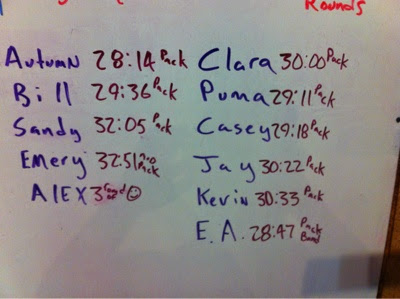 Rounds
Autumn 28:14 Pack
Bill 29:36 Pack
Sandy 32:05 Pack
Emery 32:51 no Pack
Alex 3
Clara 30:00 Pack
Puma 29:11 Pack
Casey 29:18 Pack
Jay 30:22 Pack
Kevin 30:33 Pack
E.A. 28:47 Pack Band